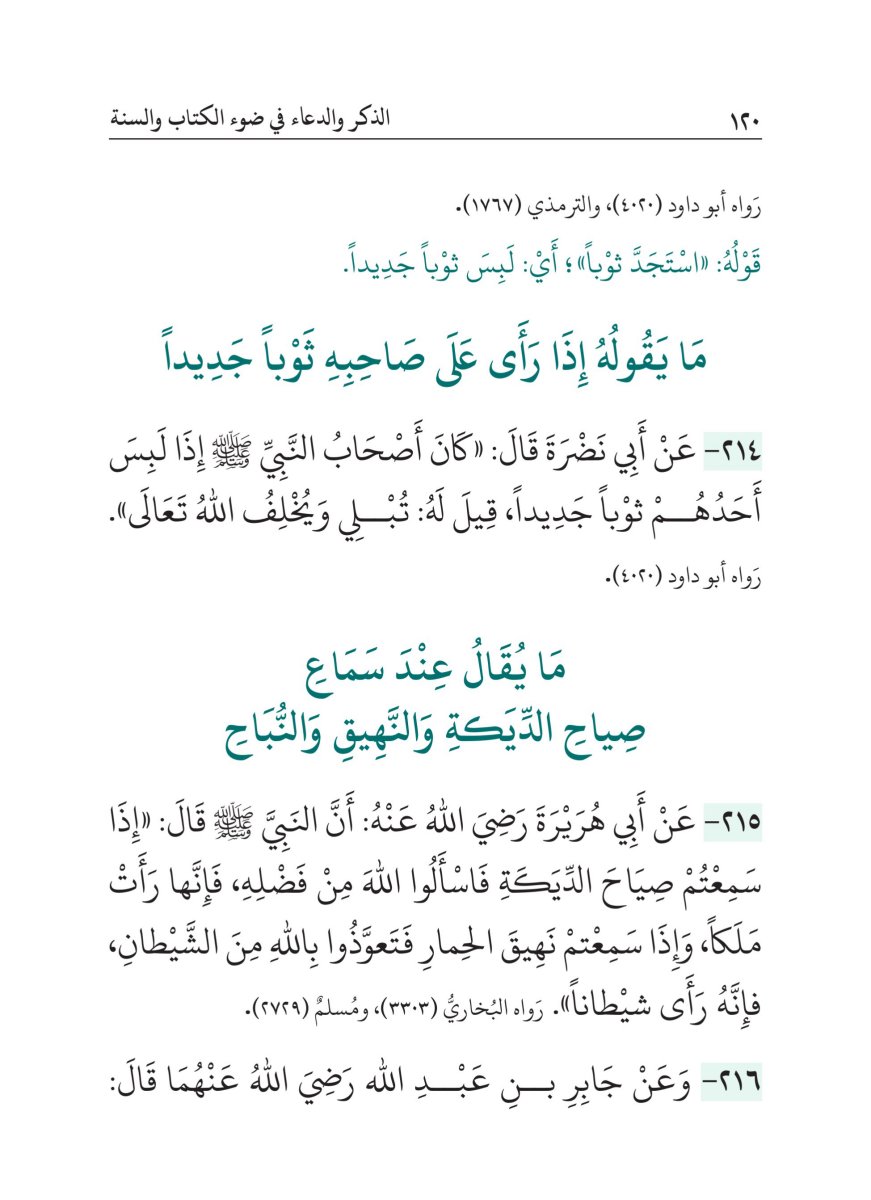 ١٢٠ الذكر والدعاء في ضوء الكتاب والسنة
رَواه أبو داود (٤٠٢٠)، والترمذي (١٧٦٧).
قَوْلُهُ: «اسْتَجَدَّ ثوْباً»؛ أَيْ: لَبِسَ ثوْباً جَدِيداً.
مَا يَقُولُهُ إِذَا رَأَى عَلَى صَاحِبِهِ ثَوْباً جَدِيداً
٢١٤- عَنْ أَبِي نَضْرَةَ قَالَ: «كَانَ أَصْحَابُ النَّبِيِّ ﷺ إِذَا لَبِسَ
أَحَدُهُـــمْ ثوْباً جَدِيداً، قِيلَ لَهُ: تُبْـــلِي وَيُخْلِفُ اللهُ تَعَالَى».
رَواه أبو داود (٤٠٢٠).
مَا يُقَالُ عِنْدَ سَمَاعِ
صِياحِ الدِّيَكةِ وَالنَّهِيقِ وَالنُّبَاحِ
٢١٥- عَنْ أَبِي هُرَيْرَةَ رَضِيَ اللهُ عَنْهُ: أَنَّ النَبِيَّ ﷺ قَالَ: «إِذَا
سَمِعْتُمْ صِيَاحَ الدِّيَكَةِ فَاسْأَلُوا اللهَ مِنْ فَضْلِهِ، فَإِنَّها رَأَتْ
مَلَكاً، وَإِذَا سَمِعْتمْ نَهِيقَ الحِمارِ فَتَعوَّذُوا بِاللهِ مِنَ الشَّيْطانِ،
فإِنَّهُ رَأَى شيْطاناً». رَواه البُخاريُّ (٣٣٠٣)، ومُسلمٌ (٢٧٢٩).
٢١٦- وَعَنْ جَابِرِ بـــنِ عَبْـــدِ الله رَضِيَ اللهُ عَنْهُمَا قَالَ: